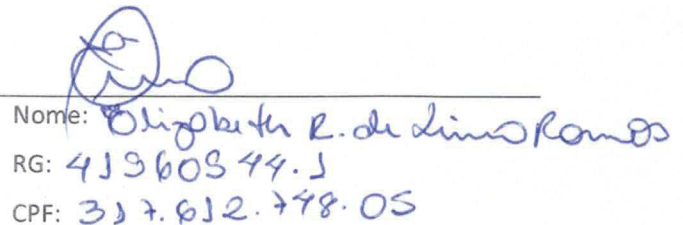 Nome: Elizabeth R. de Lima Ramos
RG: 41960944.1
CPF: 317.612.748.05